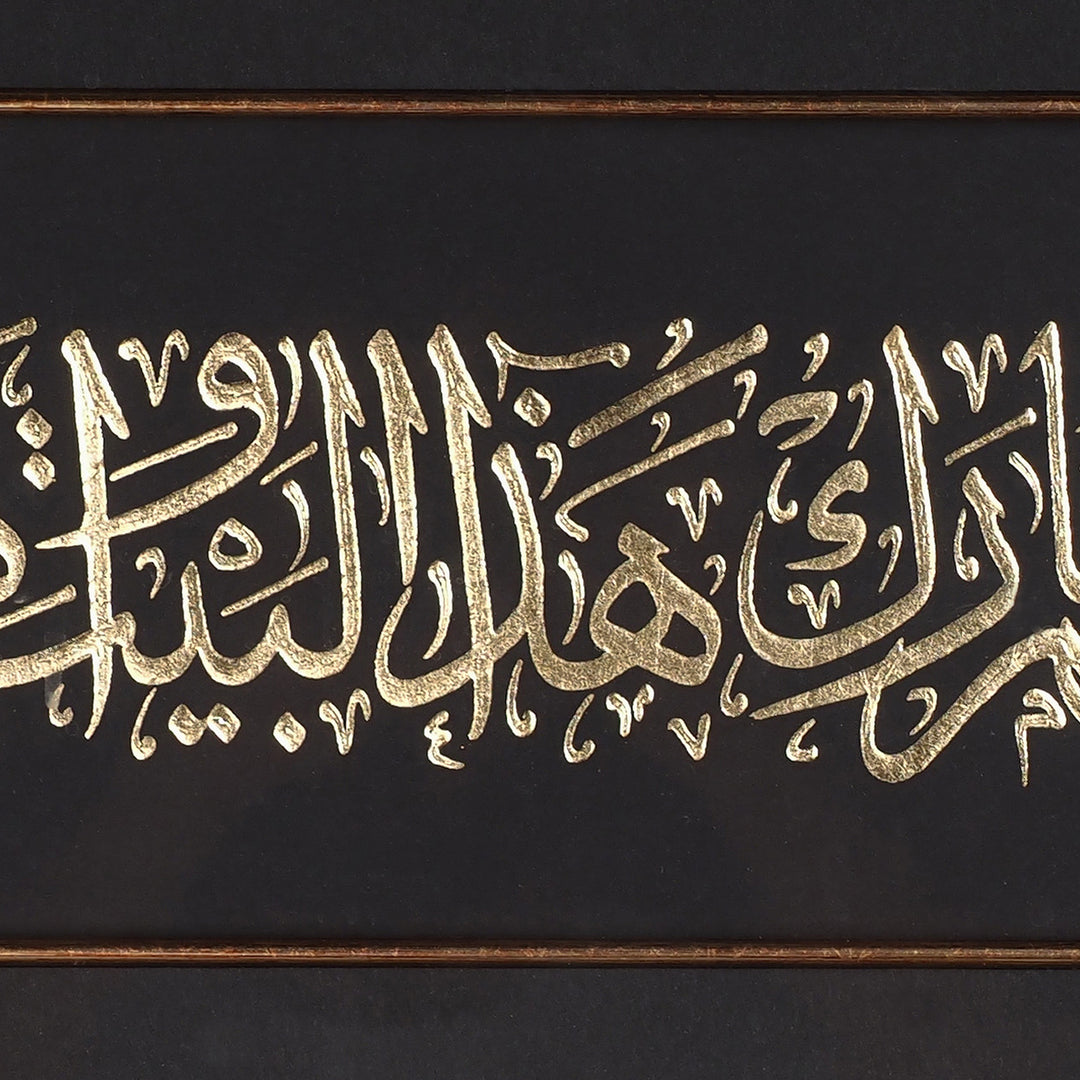 بارك هذا البيت و